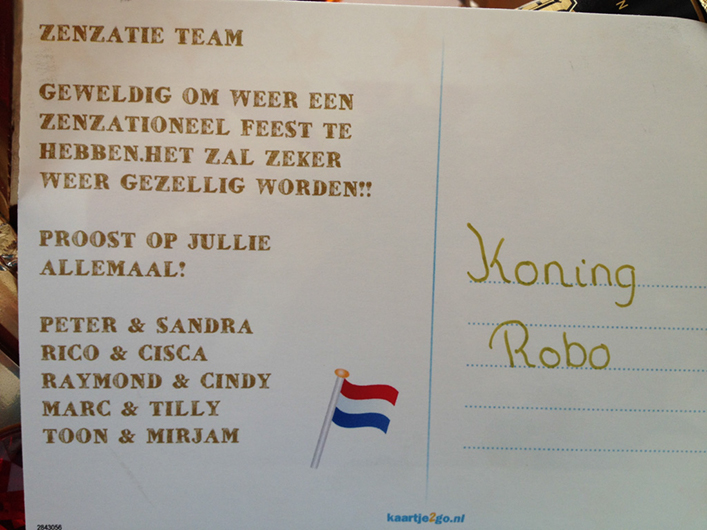 ZENZATIE TEAM
GEWELDIG OM WEER EEN
ZENZATIONEEL FEEST TE
HEBBEN.HET ZAL ZEKER
WEER GEZELLIG WORDEN!!
PROOST OP JULLIE
ALLEMAAL!
PETER & SANDRA
RICO & CISCA
RAYMOND & CINDY
MARC & TILLY
TOON & MIRJAM
Koning
Robo
kaartje2go.nl
2843056